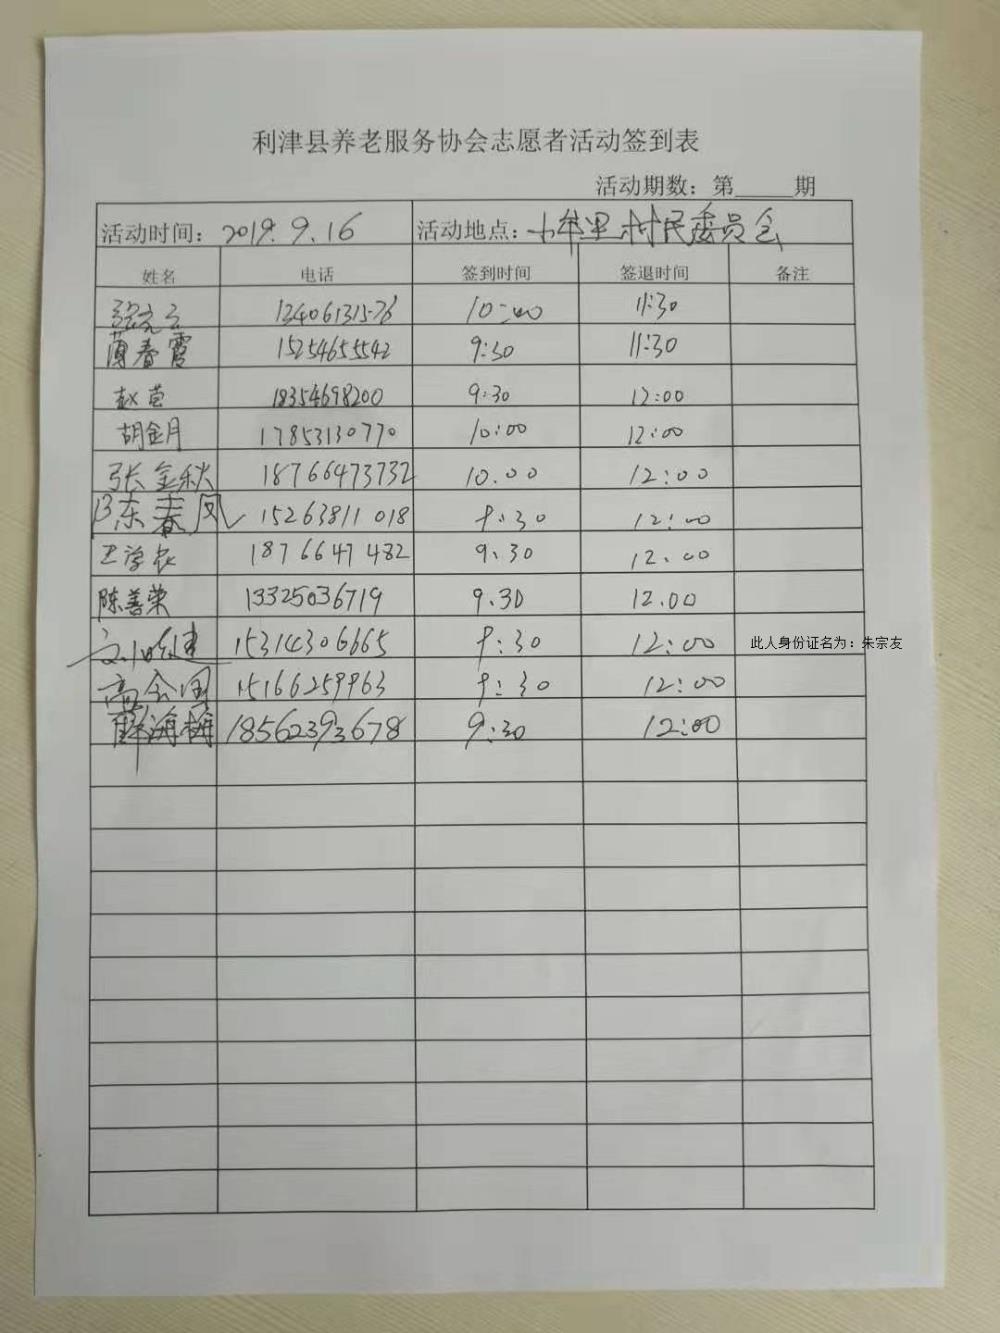 利津县养老服务协会志愿者活动签到表
活动期数：第_____期
活动时间：2019.9.16 活动地点：村民委员会
姓名 电话 签到时间 签退时间 备注
13406131576 10:00 11:30
薄春霞 15254655542 9:30 11:30
赵莹 18354698200 9:30 12:00
胡金月 17853130770 10:00 12:00
张金秋 18766473732 10.00 12:00
陈春凤 15263811018 9.30 12:00
王学农 1876647482 9.30 12.00
陈善荣 13325036719 9.30 12.00
15314306665 9:30 12:00 此人身份证名为：朱宗友
高会国 15166259963 9:30 12:00
海梅 18562393678 9:30 12:00